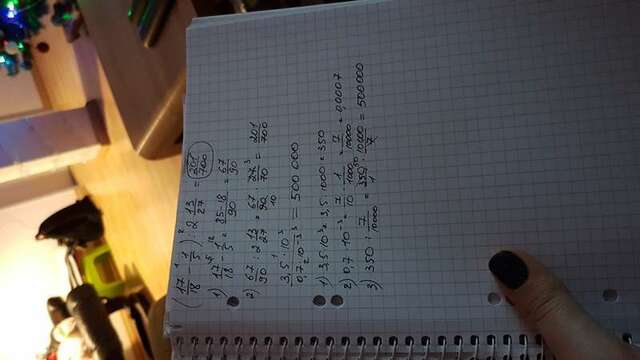 (17/18 - 1/5) : 2 13/27 = 201/700
1) 17/18 - 1/5 = 85-18/90 = 67/90
2) 67/90 : 2 13/27 = 67/90 · 27/70 = 201/700
3,5·10³/0,7·10⁻³ = 500 000
1) 3,5·10³ = 3,5·1000 = 350
2) 0,7·10⁻³ = 7/10 · 1/1000 = 7/10000 = 0,0007
3) 350 : 7/10000 = 350/1 · 10000/7 = 500000